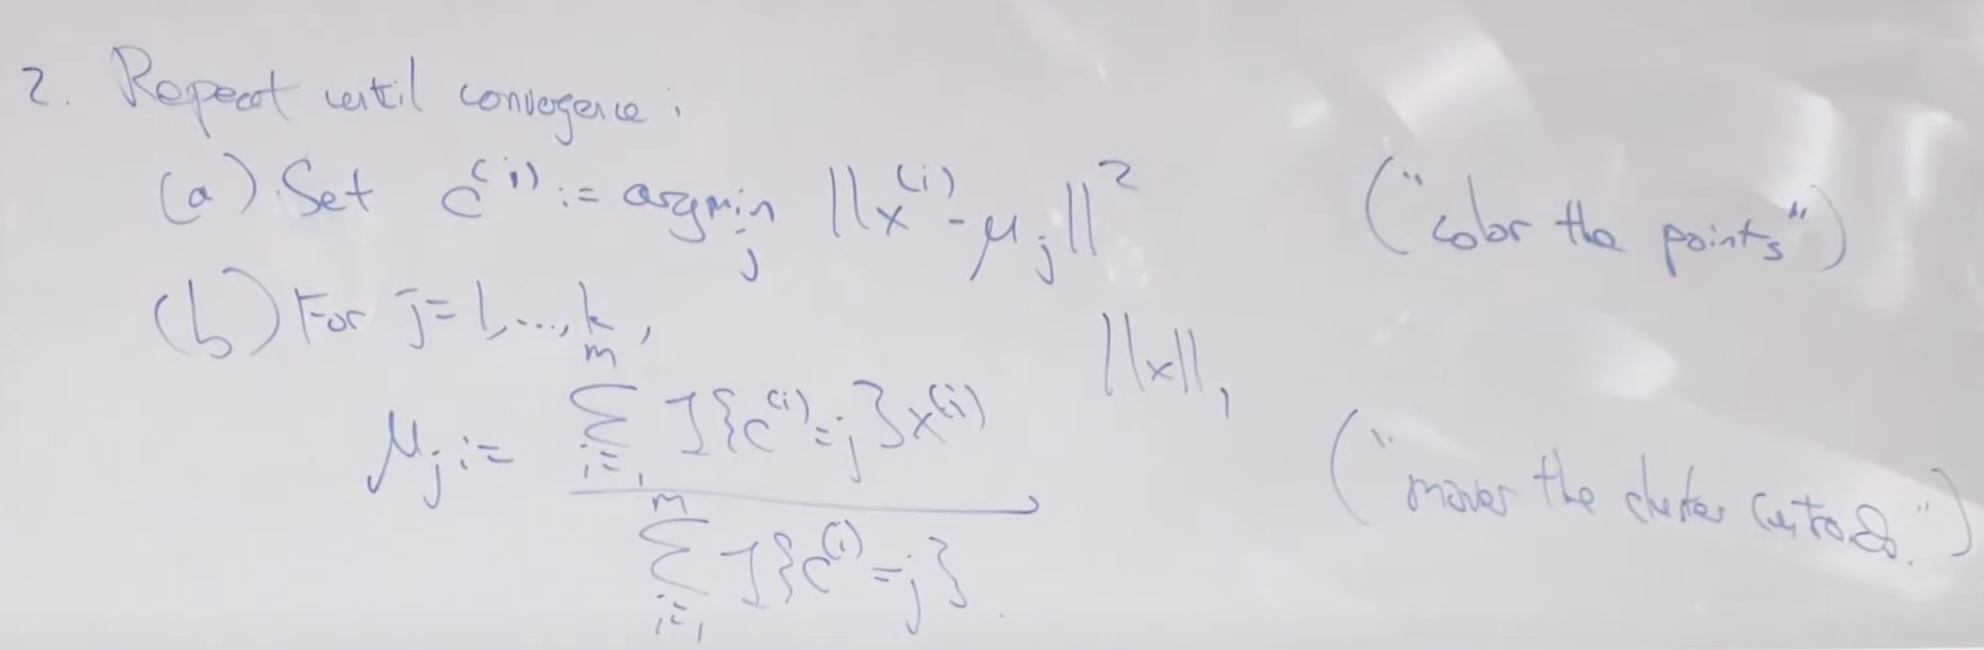 2. Repeat until convergence:
(a) Set c⁽ⁱ⁾ := argmin_j ||x⁽ⁱ⁾ - μ_j||² ("color the points")
(b) For j = 1, ..., k,
||x||₁
μ_j := \frac{\sum_{i=1}^{m} 1{c⁽ⁱ⁾ = j} x⁽ⁱ⁾}{\sum_{i=1}^{m} 1{c⁽ⁱ⁾ = j}}
("moves the cluster centroids.")